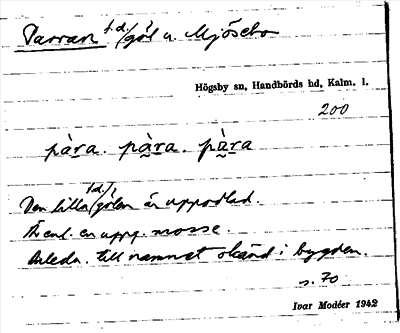 Parran f.d./göl n. Mjösebo
Högsby sn, Handbörds hd, Kalm. l.
200
pàra. pàra. pàra
Den lilla f.d./gölen är uppodlad.
Är enl. en uppg. mosse.
Anledn. till namnet okänd i bygden.
s. 70
Ivar Modéer 1942